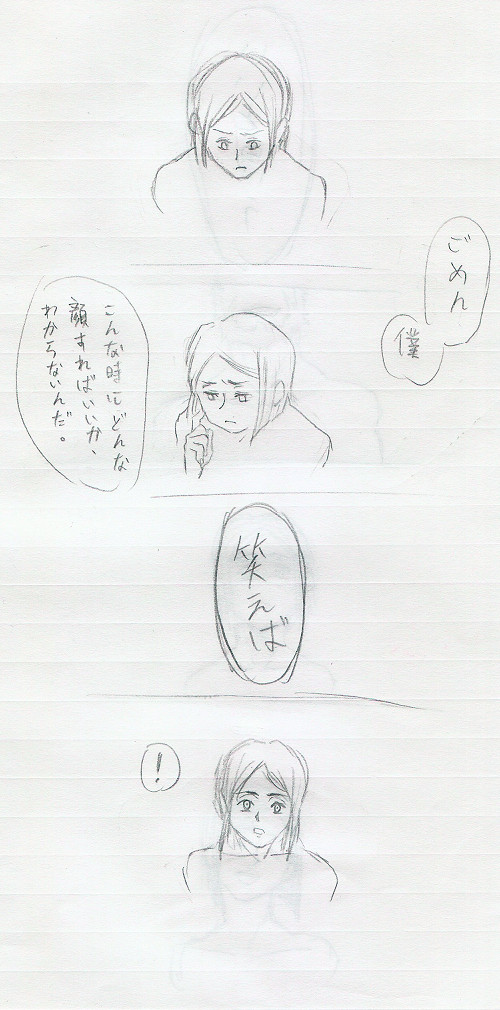 ごめん
僕
こんな時にどんな
顔すればいいか、
わからないんだ。
笑えば
！